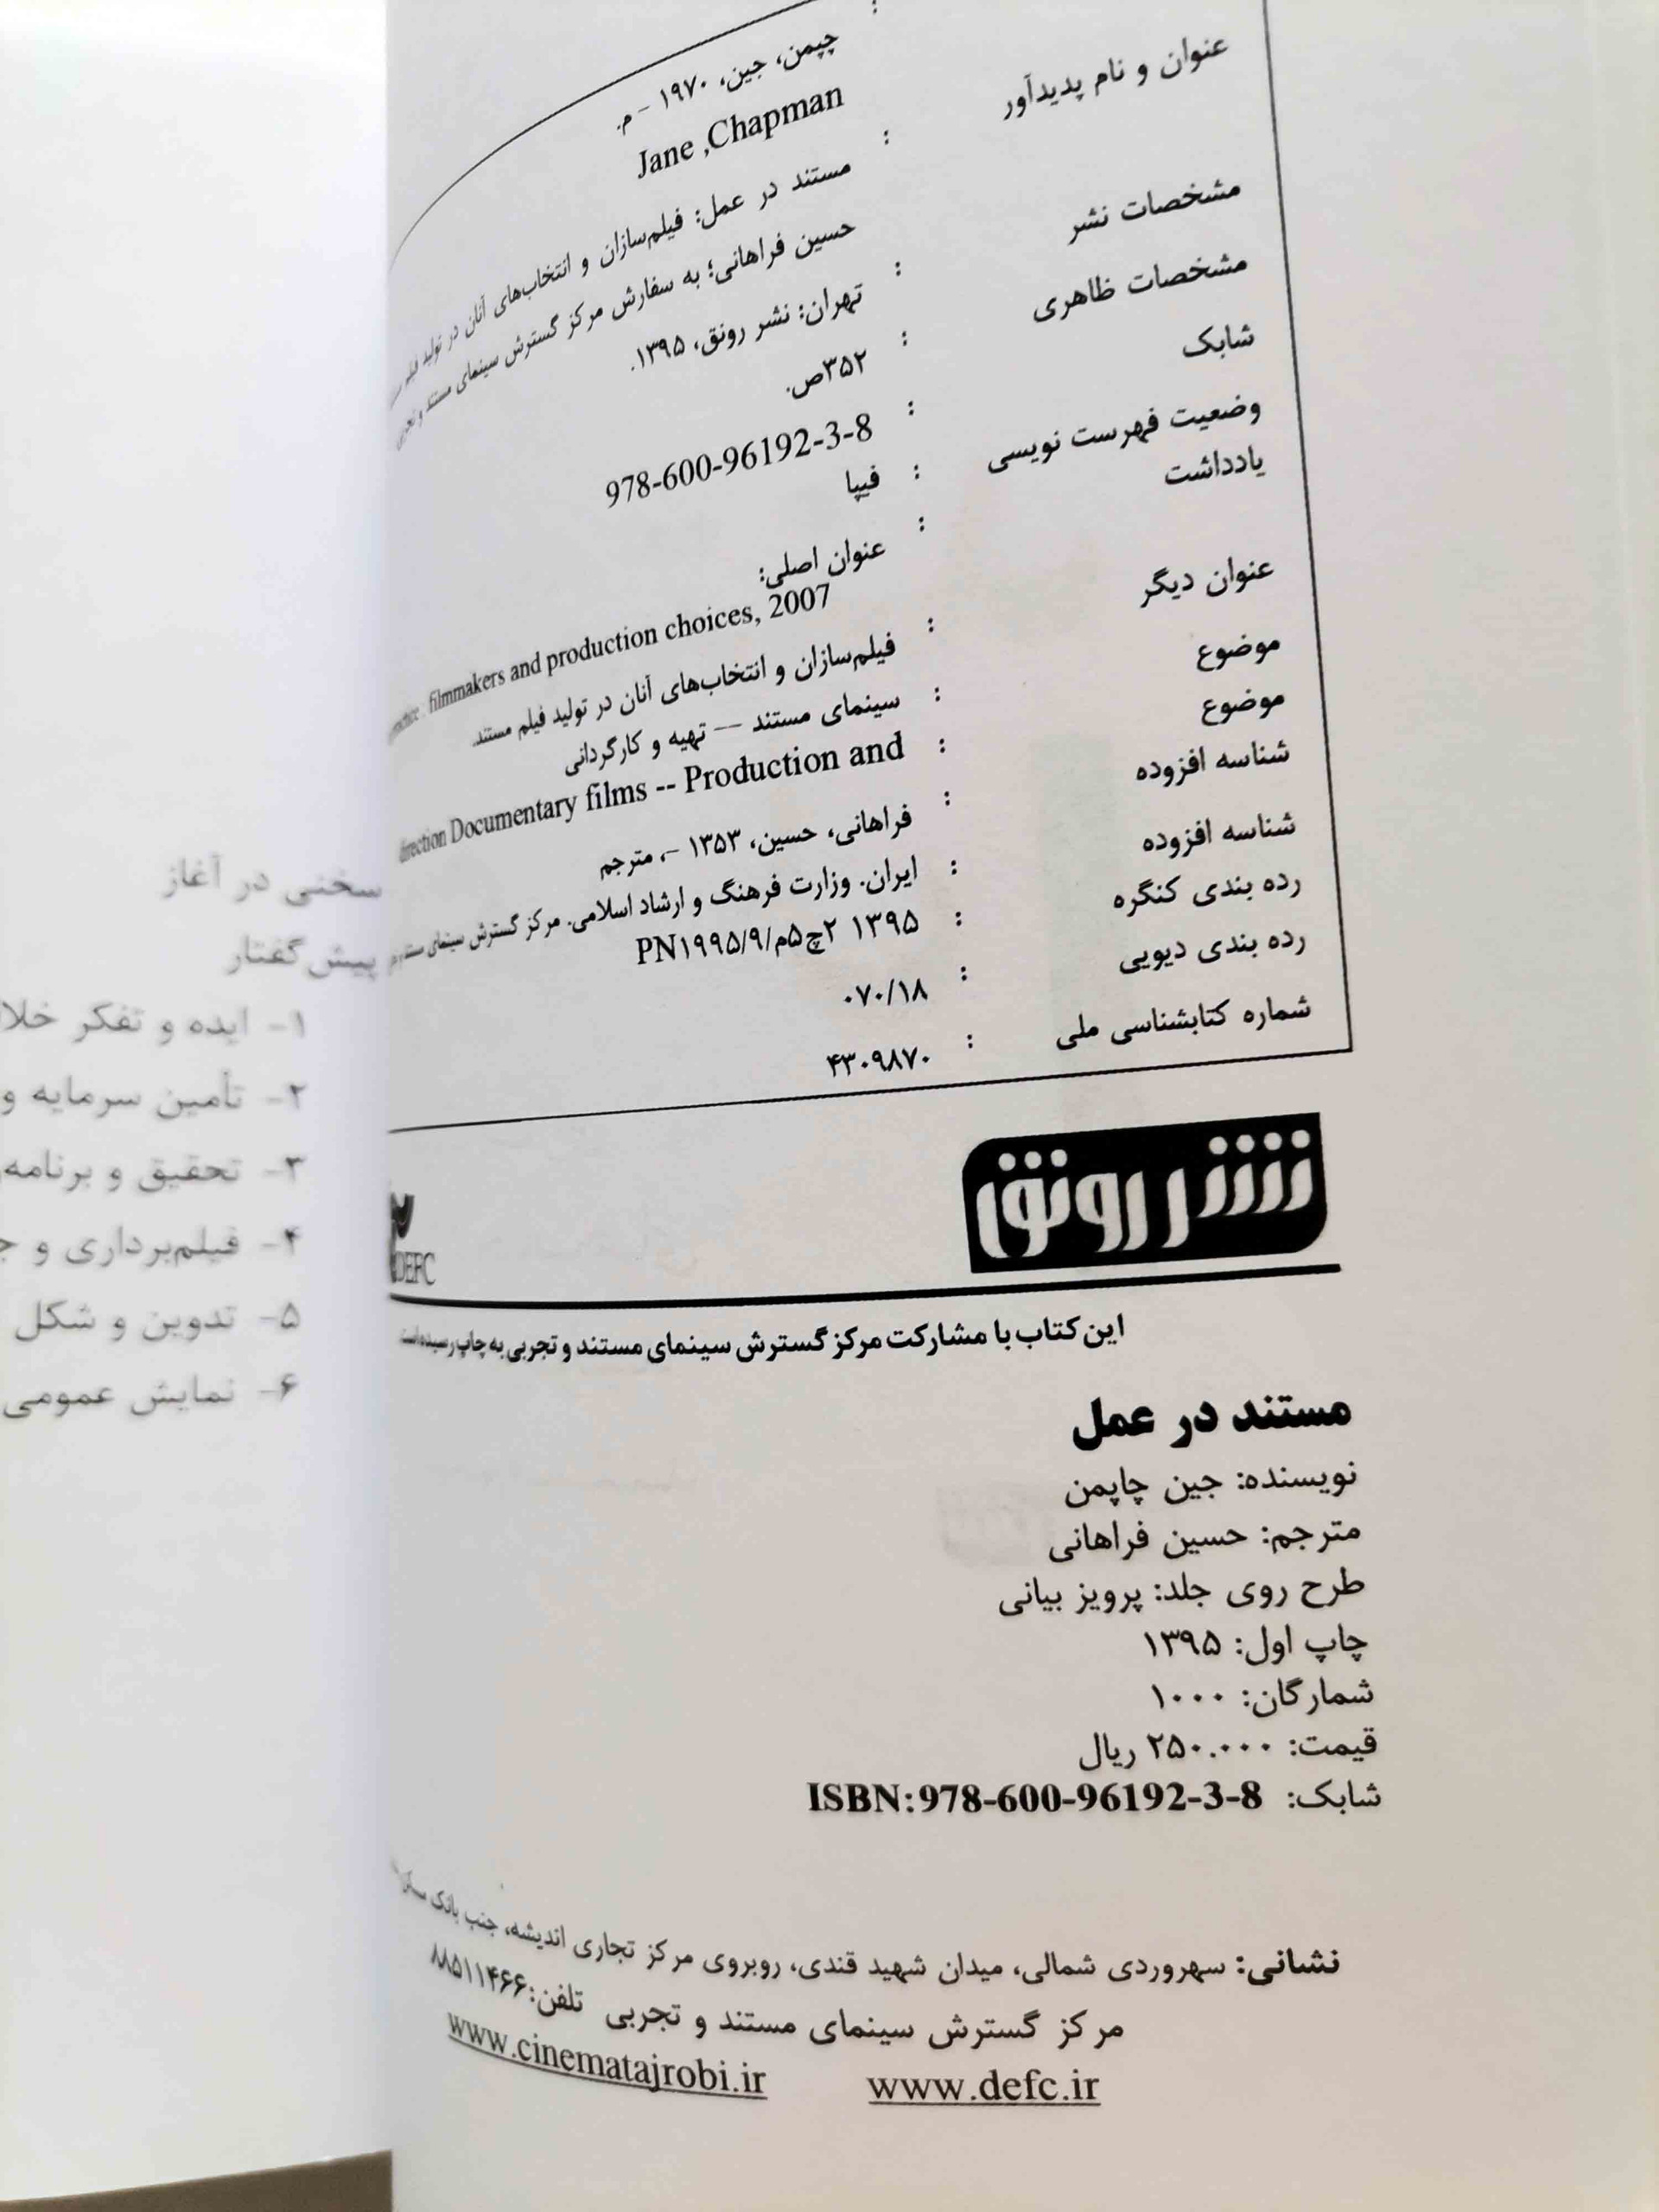 چپمن، جین، ۱۹۷۰ - م.
Jane ,Chapman
عنوان و نام پدیدآور : مستند در عمل: فیلم‌سازان و انتخاب‌های آنان در تولید فیلم
حسین فراهانی؛ به سفارش مرکز گسترش سینمای مستند و
مشخصات نشر : تهران: نشر رونق، ۱۳۹۵.
مشخصات ظاهری : ۳۵۲ص.
شابک : 978-600-96192-3-8
وضعیت فهرست نویسی : فیپا
یادداشت : عنوان اصلی:
filmmakers and production choices, 2007
عنوان دیگر : فیلم‌سازان و انتخاب‌های آنان در تولید فیلم مستند.
موضوع : سینمای مستند -- تهیه و کارگردانی
موضوع : direction Documentary films -- Production and
شناسه افزوده : فراهانی، حسین، ۱۳۵۳ -، مترجم
شناسه افزوده : ایران. وزارت فرهنگ و ارشاد اسلامی. مرکز گسترش سینمای
رده بندی کنگره : ۱۳۹۵ ۲چ۵م/PN۱۹۹۵/۹
رده بندی دیویی : ۰۷۰/۱۸
شماره کتابشناسی ملی : ۴۳۰۹۸۷۰
نشر رونق
DEFC
این کتاب با مشارکت مرکز گسترش سینمای مستند و تجربی به چاپ رسیده است
مستند در عمل
نویسنده: جین چاپمن
مترجم: حسین فراهانی
طرح روی جلد: پرویز بیانی
چاپ اول: ۱۳۹۵
شمارگان: ۱۰۰۰
قیمت: ۲۵۰.۰۰۰ ریال
شابک: ISBN:978-600-96192-3-8
نشانی: سهروردی شمالی، میدان شهید قندی، روبروی مرکز تجاری اندیشه، جنب بانک
مرکز گسترش سینمای مستند و تجربی تلفن:۸۸۵۱۱۴۶۶
www.defc.ir www.cinematajrobi.ir
سخنی در آغاز
پیش‌گفتار
۱- ایده و تفکر
۲- تأمین سرمایه و
۳- تحقیق و برنامه
۴- فیلم‌برداری و
۵- تدوین و شکل
۶- نمایش عمومی